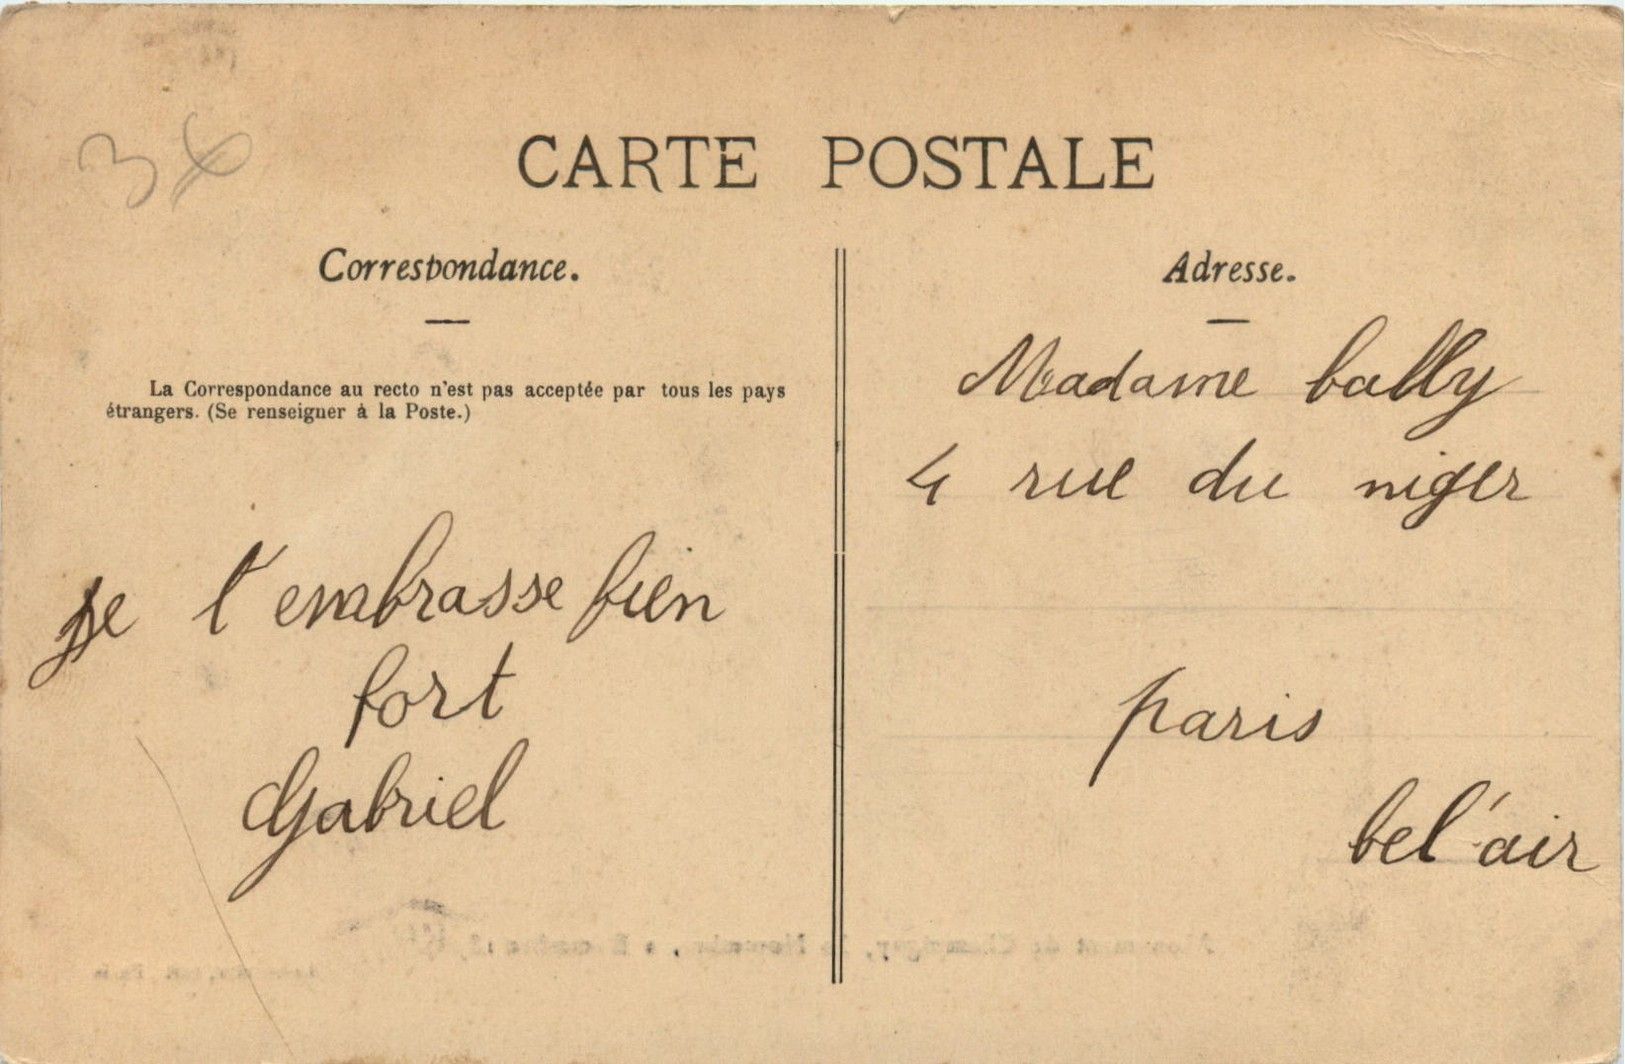 3
CARTE POSTALE
Correspondance.
La Correspondance au recto n'est pas acceptée par tous les pays
étrangers. (Se renseigner à la Poste.)
je t'embrasse bien
fort
Gabriel
Adresse.
Madame bally
4 rue du niger
paris
bel'air